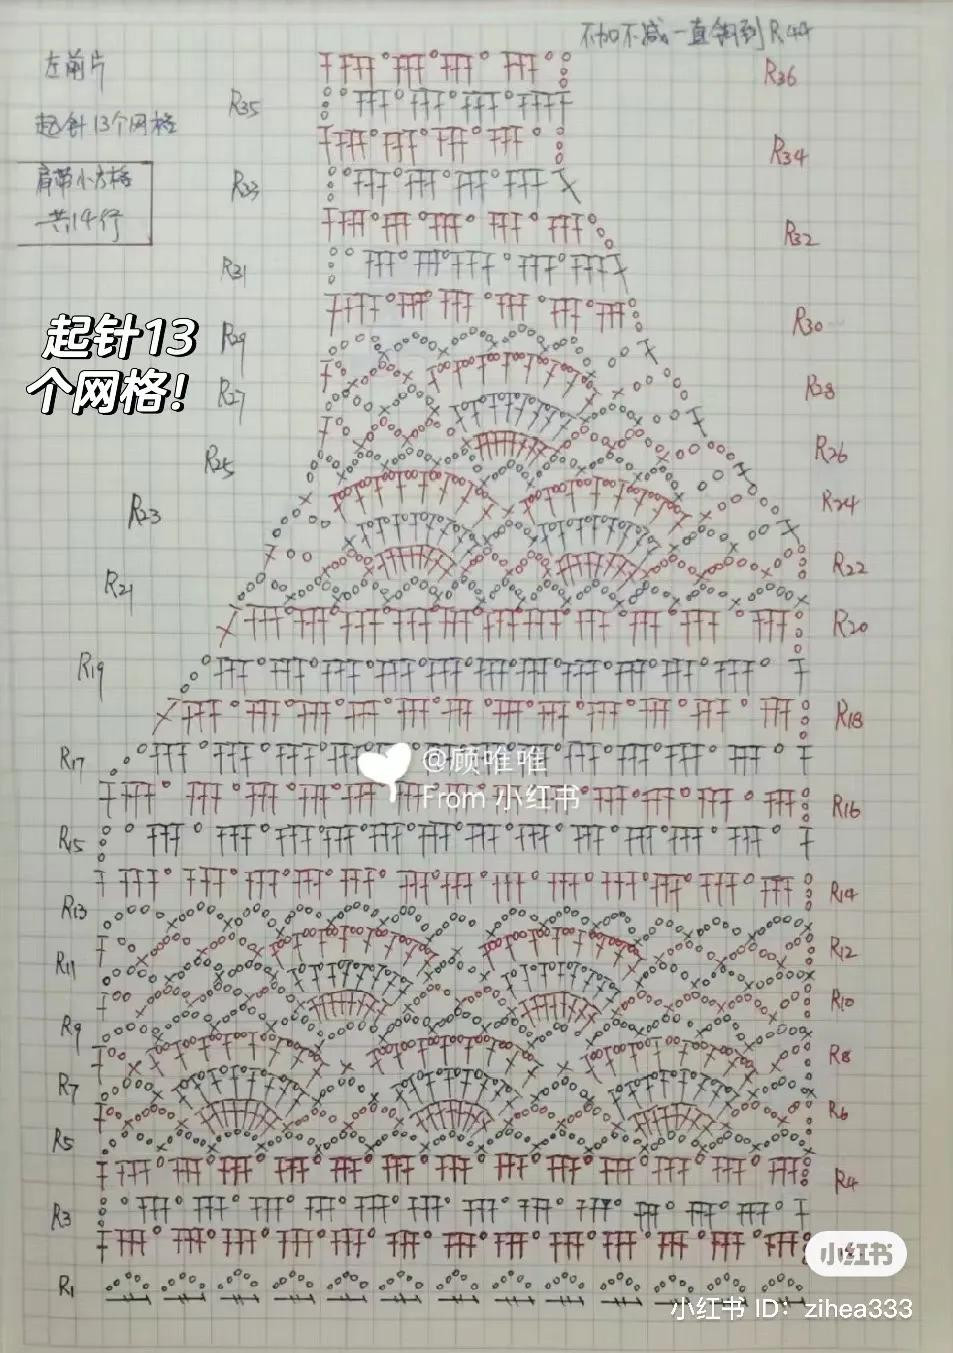 不加不减一直钩到R44
左前片
R36
R35
起针13个网格
R34
肩带小方格
共14行
R33
R32
R31
起针13
个网格!
R30
R29
R28
R27
R26
R25
R24
R23
R22
R21
R20
R19
R18
R17
@顾唯唯
From 小红书
R16
R15
R14
R13
R12
R11
R10
R9
R8
R7
R6
R5
R4
R3
小红书
R1
小红书 ID: zihea333